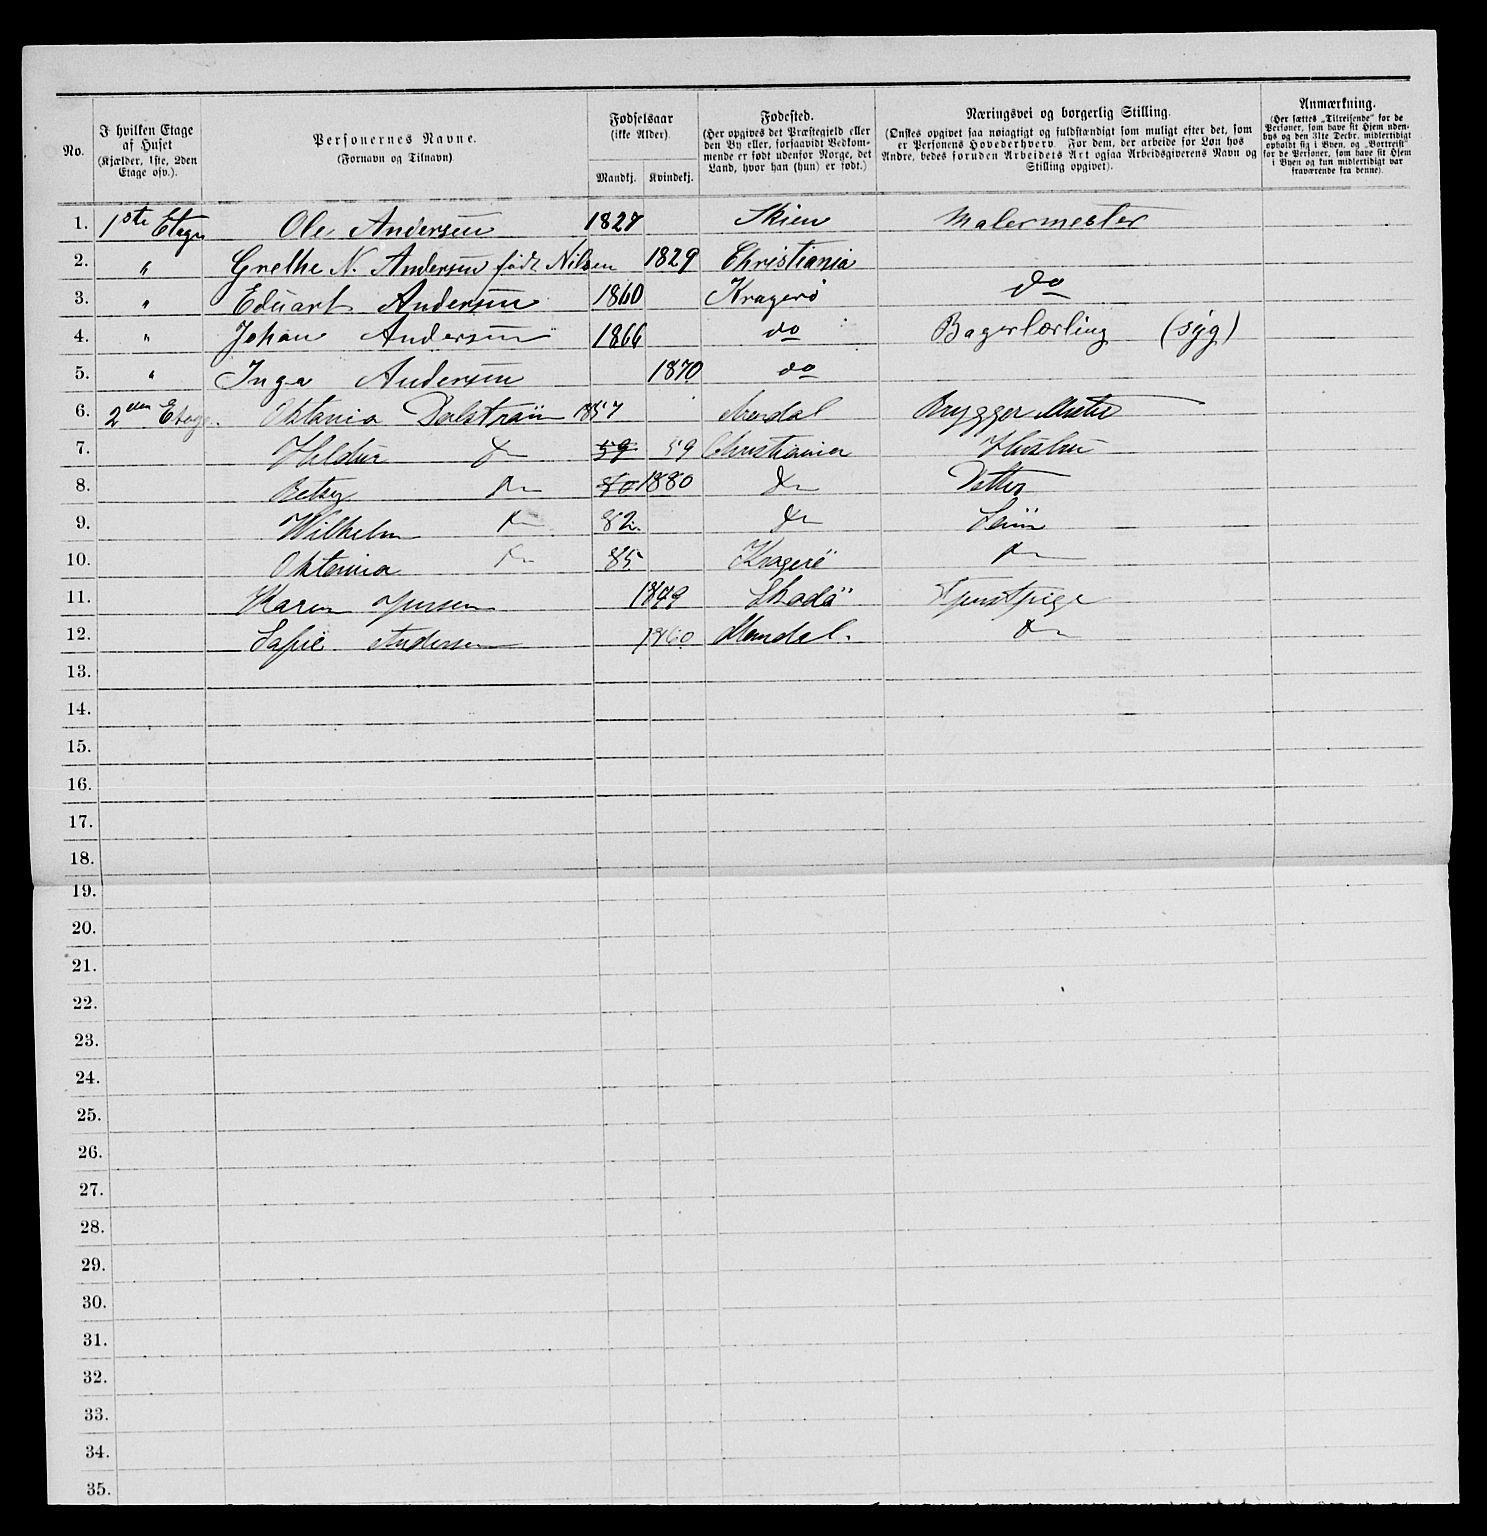 No.
I hvilken Etage af Huset (Kjælder, 1ste, 2den Etage osv.).
Personernes Navne. (Fornavn og Tilnavn)
Fødselsaar (ikke Alder).
Mandkj. Kvindekj.
Fødested. (Her opgives det Præstegjeld eller den By eller, forsaavidt Vedkommende er født udenfor Norge, det Land, hvor han (hun) er født.)
Næringsvei og borgerlig Stilling. (Ønskes opgivet saa nøiagtigt og fuldstændigt som muligt efter det, som er Personens Hovederhverv. For dem, der arbeide for Løn hos Andre, bedes foruden Arbeidets Art ogsaa Arbeidsgiverens Navn og Stilling opgivet).
Anmærkning. (Her sættes „Tilreisende" for de Personer, som have sit Hjem udenbys og den 31te Decbr. midlertidigt opholdt sig i Byen, og „Bortreist" for de Personer, som have sit Hjem i Byen og kun midlertidigt var fraværende fra denne).
1. 1ste Etage Ole Andersen 1827 Skien Malermester
2. " Grethe N. Andersen født Nilsen 1829 Christiania
3. " Eduart Andersen 1860 Kragerö do
4. " Johan Andersen 1866 do Bagerlærling (syg)
5. " Inga Andersen 1870 do
6. 2den Etage Oktavio Dalström 1857 Arendal Brygger Mester
7. Hildur do 59 59 Christiania Hustru
8. Betsy do 80 1880 do Datter
9. Wilhelm do 82. do Sön
10. Oktavia do 85 Kragerö do
11. Karen Jensen 1849 Skadö Tjenestpige
12. Sofie Andersen 1860 Mandal. do
13.
14.
15.
16.
17.
18.
19.
20.
21.
22.
23.
24.
25.
26.
27.
28.
29.
30.
31.
32.
33.
34.
35.